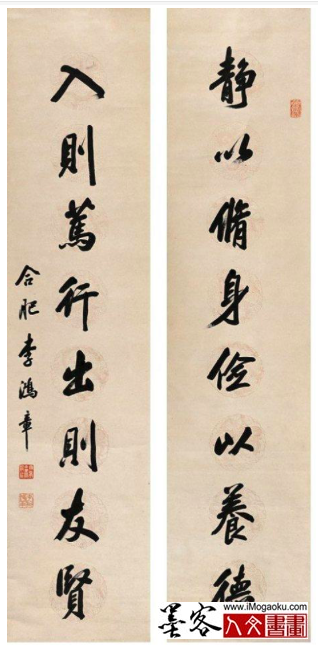 静以脩身儉以養德
入則篤行出則友賢
合肥李鴻章
www.iMogaoku.com
墨客
人文書畫